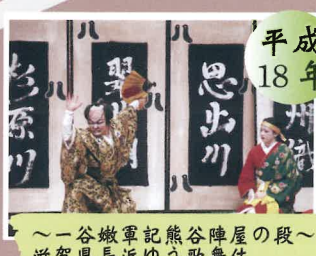 平成
18年
杉原川
思出川
州織
～一谷嫩軍記熊谷陣屋の段～
滋賀県長浜ゆう歌舞伎